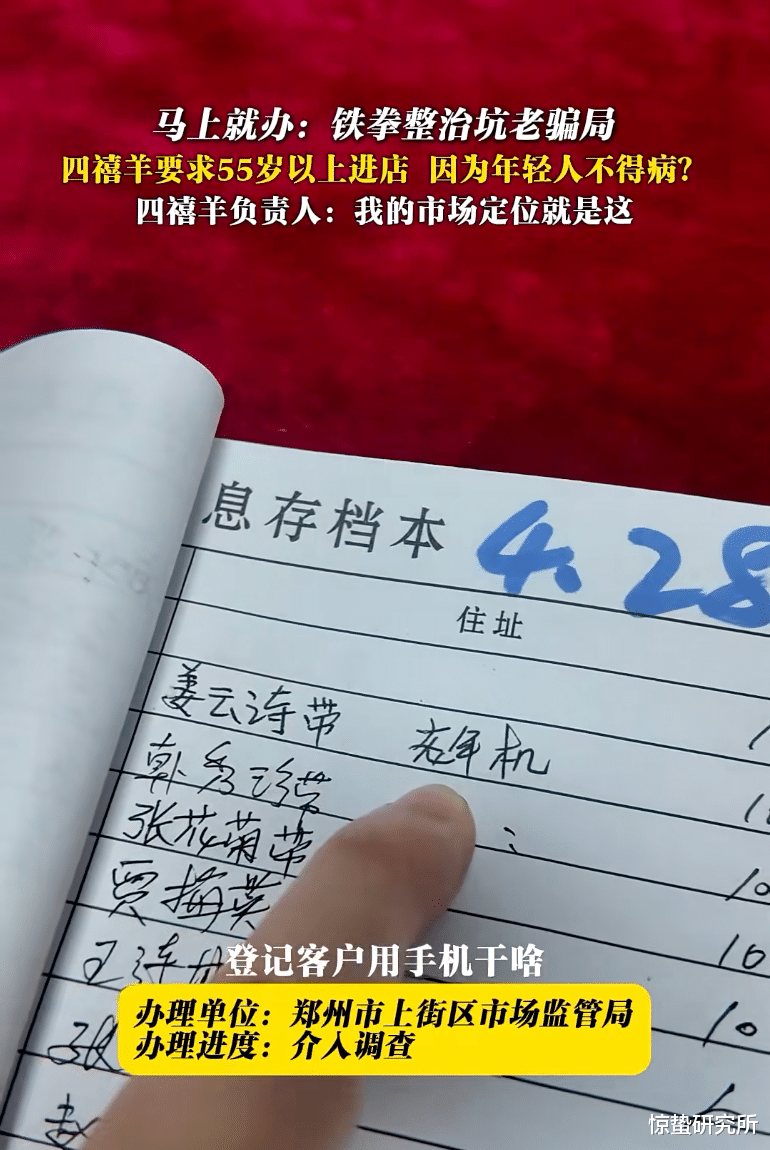 马上就办：铁拳整治坑老骗局
四禧羊要求55岁以上进店 因为年轻人不得病？
四禧羊负责人：我的市场定位就是这
息存档本 4.28
住址
姜云涛带 老年机
韩秀珍带
10
张花菊带
10
贾梅英
10
王连
10
张
赵
登记客户用手机干啥
办理单位：郑州市上街区市场监管局
办理进度：介入调查
惊蛰研究所